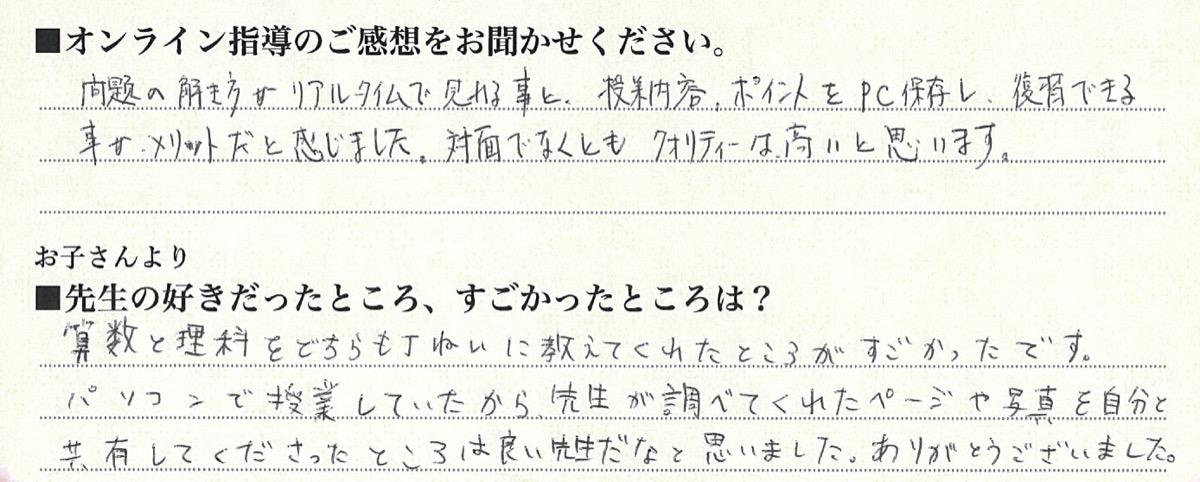 ■オンライン指導のご感想をお聞かせください。
問題の解き方がリアルタイムで見れる事と、授業内容、ポイントをPC保存し、復習できる
事がメリットだと感じました。対面でなくともクオリティーは高いと思います。
お子さんより
■先生の好きだったところ、すごかったところは？
算数と理科をどちらも丁ねいに教えてくれたところがすごかったです。
パソコンで授業していたから、先生が調べてくれたページや写真を自分と
共有してくださったところは良い先生だなと思いました。ありがとうございました。